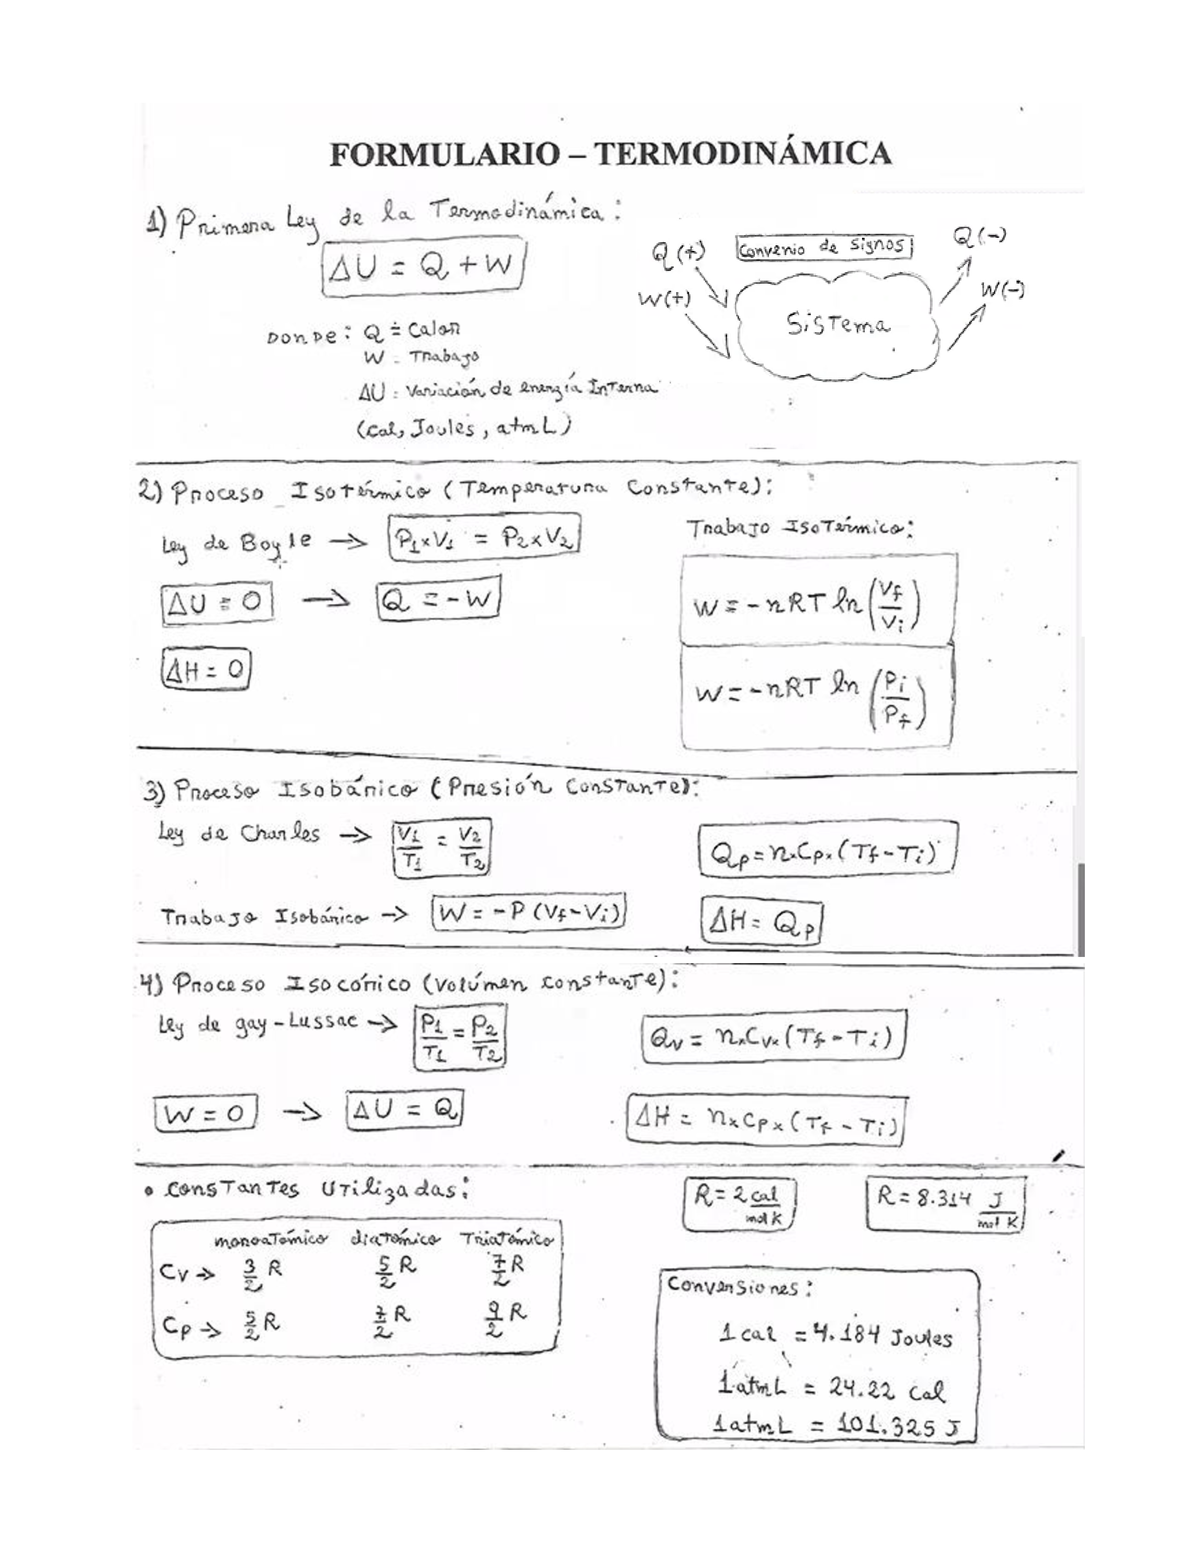 FORMULARIO – TERMODINÁMICA
1) Primera Ley de la Termodinámica:
ΔU = Q + W
Donde: Q = Calor
W = Trabajo
ΔU = Variación de energía Interna
(cal, Joules, atmL)
Convenio de signos
Q(+)
W(+)
Sistema
Q(-)
W(-)
2) Proceso Isotérmico (Temperatura Constante):
Ley de Boyle → P1×V1 = P2×V2
ΔU = 0 → Q = -W
ΔH = 0
Trabajo Isotérmico:
W = -nRT ln (Vf/Vi)
W = -nRT ln (Pi/Pf)
3) Proceso Isobárico (Presión Constante):
Ley de Charles → V1/T1 = V2/T2
Qp = n×Cp×(Tf-Ti)
Trabajo Isobárico → W = -P (Vf-Vi)
ΔH = Qp
4) Proceso Isocórico (Volúmen constante):
Ley de gay-Lussac → P1/T1 = P2/T2
Qv = n×Cv×(Tf-Ti)
W = 0 → ΔU = Q
ΔH = n×Cp×(Tf-Ti)
• Constantes Utilizadas:
monoatómico diatómico Triatómico
Cv → 3/2 R 5/2 R 7/2 R
Cp → 5/2 R 7/2 R 9/2 R
R = 2 cal/mol K
R = 8.314 J/mol K
Conversiones:
1 cal = 4.184 Joules
1 atmL = 24.22 cal
1 atmL = 101.325 J